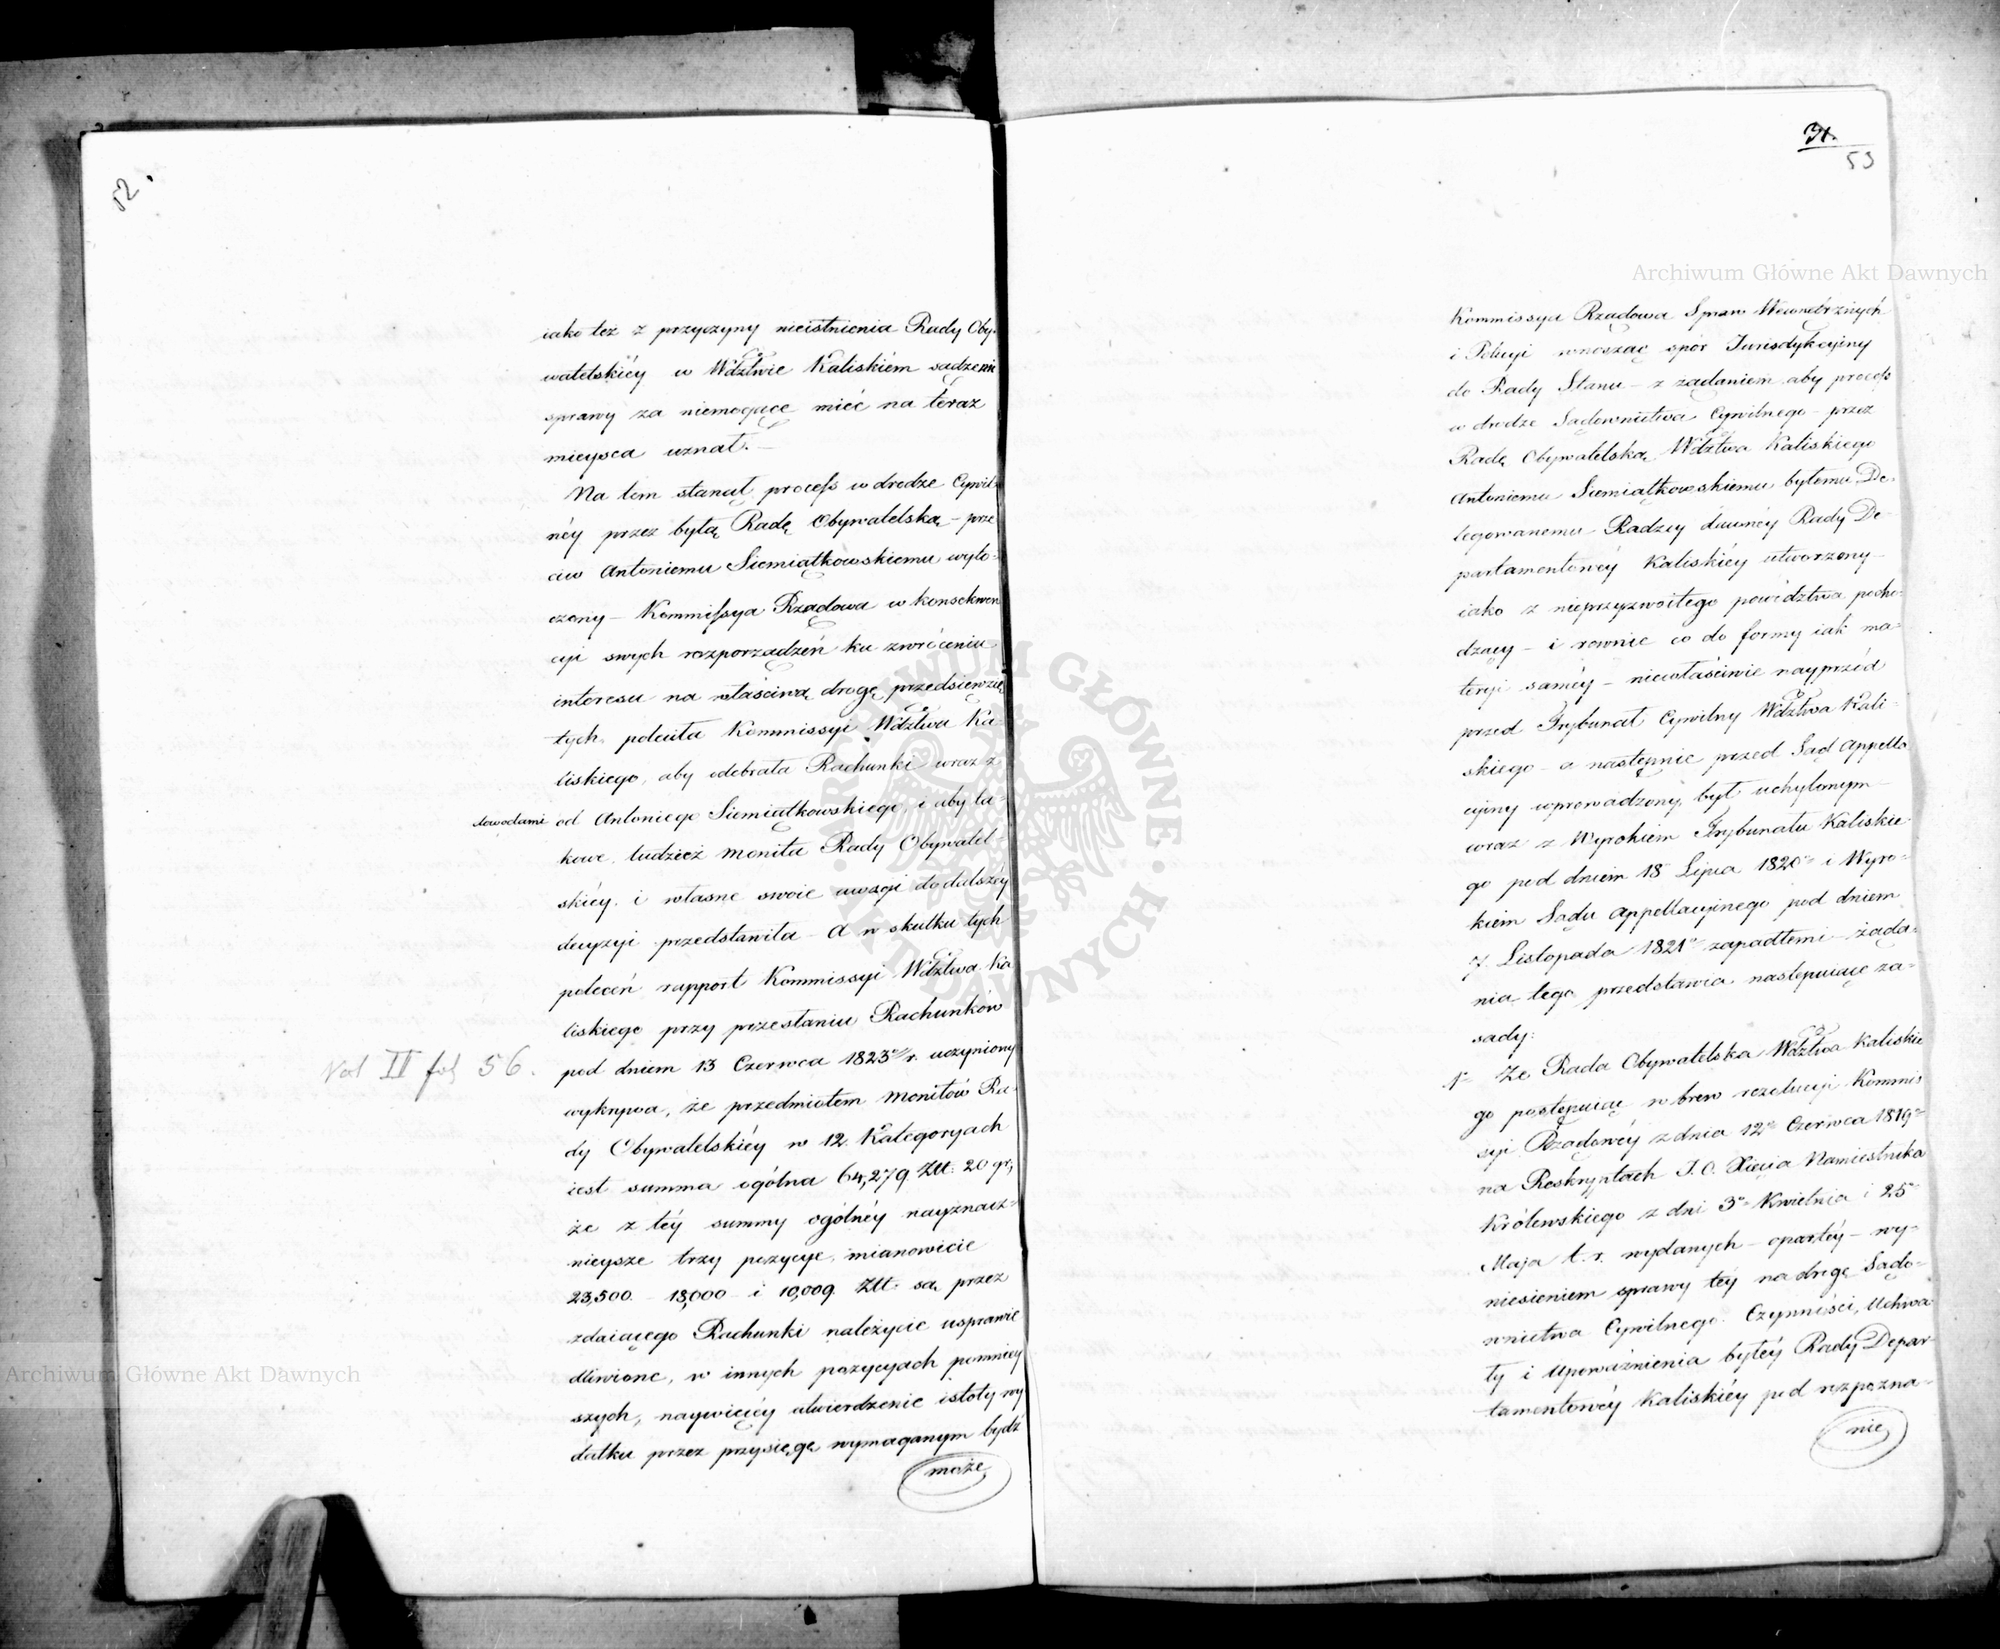 52.
iako też z przyczyny nieistnienia Rady Oby-
watelskiéy w Wdztwie Kaliskiém sądzenie
sprawy za niemogące mieć na teraz
mieysca uznał. —
Na tem stanął process w drodze Cywil-
néy przez byłą Radę Obywatelską – prze
ciw Antoniemu Siemiątkowskiemu wyto-
czony – Kommissya Rządowa w konsekwen
cyi swych rozporządzeń ku zwróceniu
interesu na właściwą drogę przedsięwzię
tych poleciła Kommissyi Wdztwa Ka-
liskiego, aby odebrała Rachunki wraz z
dowodami od Antoniego Siemiątkowskiego, i aby ta-
kowe, tudzież monita Rady Obywatel-
skiéy i własne swoie uwagi do dalszéy
decyzyi przedstawiła – A w skutku tych
poleceń rapport Kommissyi Wdztwa Ka
liskiego przy przesłaniu Rachunków
Vol II fol 56.
pod dniem 13 Czerwca 1823 r. uczyniony
wykrywa, że przedmiotem monitów Ra-
dy Obywatelskiéy w 12 Kategoryach
iest summa ogólna 64,279 Złt. 20 gr,
że z téy summy ogólnéy nayznacz-
nieysze trzy pozycye, mianowicie
23,500 – 18,000 – i 10,009 Złt. są przez
zdaiącego Rachunki należycie usprawie
dliwione, w innych pozycyach pomniey
szych, naywięcéy utwierdzenie istoty wy
datku przez przysięgę wymaganym bydź
może
31.
53
Kommissya Rządowa Spraw Wewnętrznych
i Policyi wnosząc spór Jurisdykcyiny
do Rady Stanu – z żądaniem aby process
w drodze Sądownictwa Cywilnego – przez
Radę Obywatelską Wdztwa Kaliskiego
Antoniemu Siemiątkowskiemu byłemu De-
legowanemu Radzcy dawnéy Rady De-
partamentowéy Kaliskiéy utworzony –
iako z nieprzyzwoitego powództwa pocho-
dzący – i równie co do formy iak ma-
teryi saméy – niewłaściwie nayprzód
przed Trybunał Cywilny Wdztwa Kali-
skiego – a następnie przed Sąd Appella
cyiny wprowadzony, był uchylonym –
wraz z Wyrokiem Trybunału Kaliskie-
go pod dniem 18 Lipca 1820 i Wyro-
kiem Sądu Appellacyinego pod dniem
7 Listopada 1821 zapadłemi – żąda-
nia tego przedstawia następuiące za-
sady:
1° Że Rada Obywatelska Wdztwa Kaliskie
go postępuiąc wbrew rezolucyi Kommis
syi Rządowéy z dnia 12 Czerwca 1819
na Reskryptach J. O. Xięcia Namiestnika
Królewskiego z dni 3 Kwietnia i 25
Maja t. r. wydanych – opartéy – wy-
niesieniem sprawy téy na drogę Sądo-
wnictwa Cywilnego. Czynności, Uchwa
ły i Upoważnienia byłéy Rady Depar-
tamentowéy Kaliskiéy pod rozpozna-
nie
Archiwum Główne Akt Dawnych
Archiwum Główne Akt Dawnych
ARCHIWUM GŁÓWNE AKT DAWNYCH